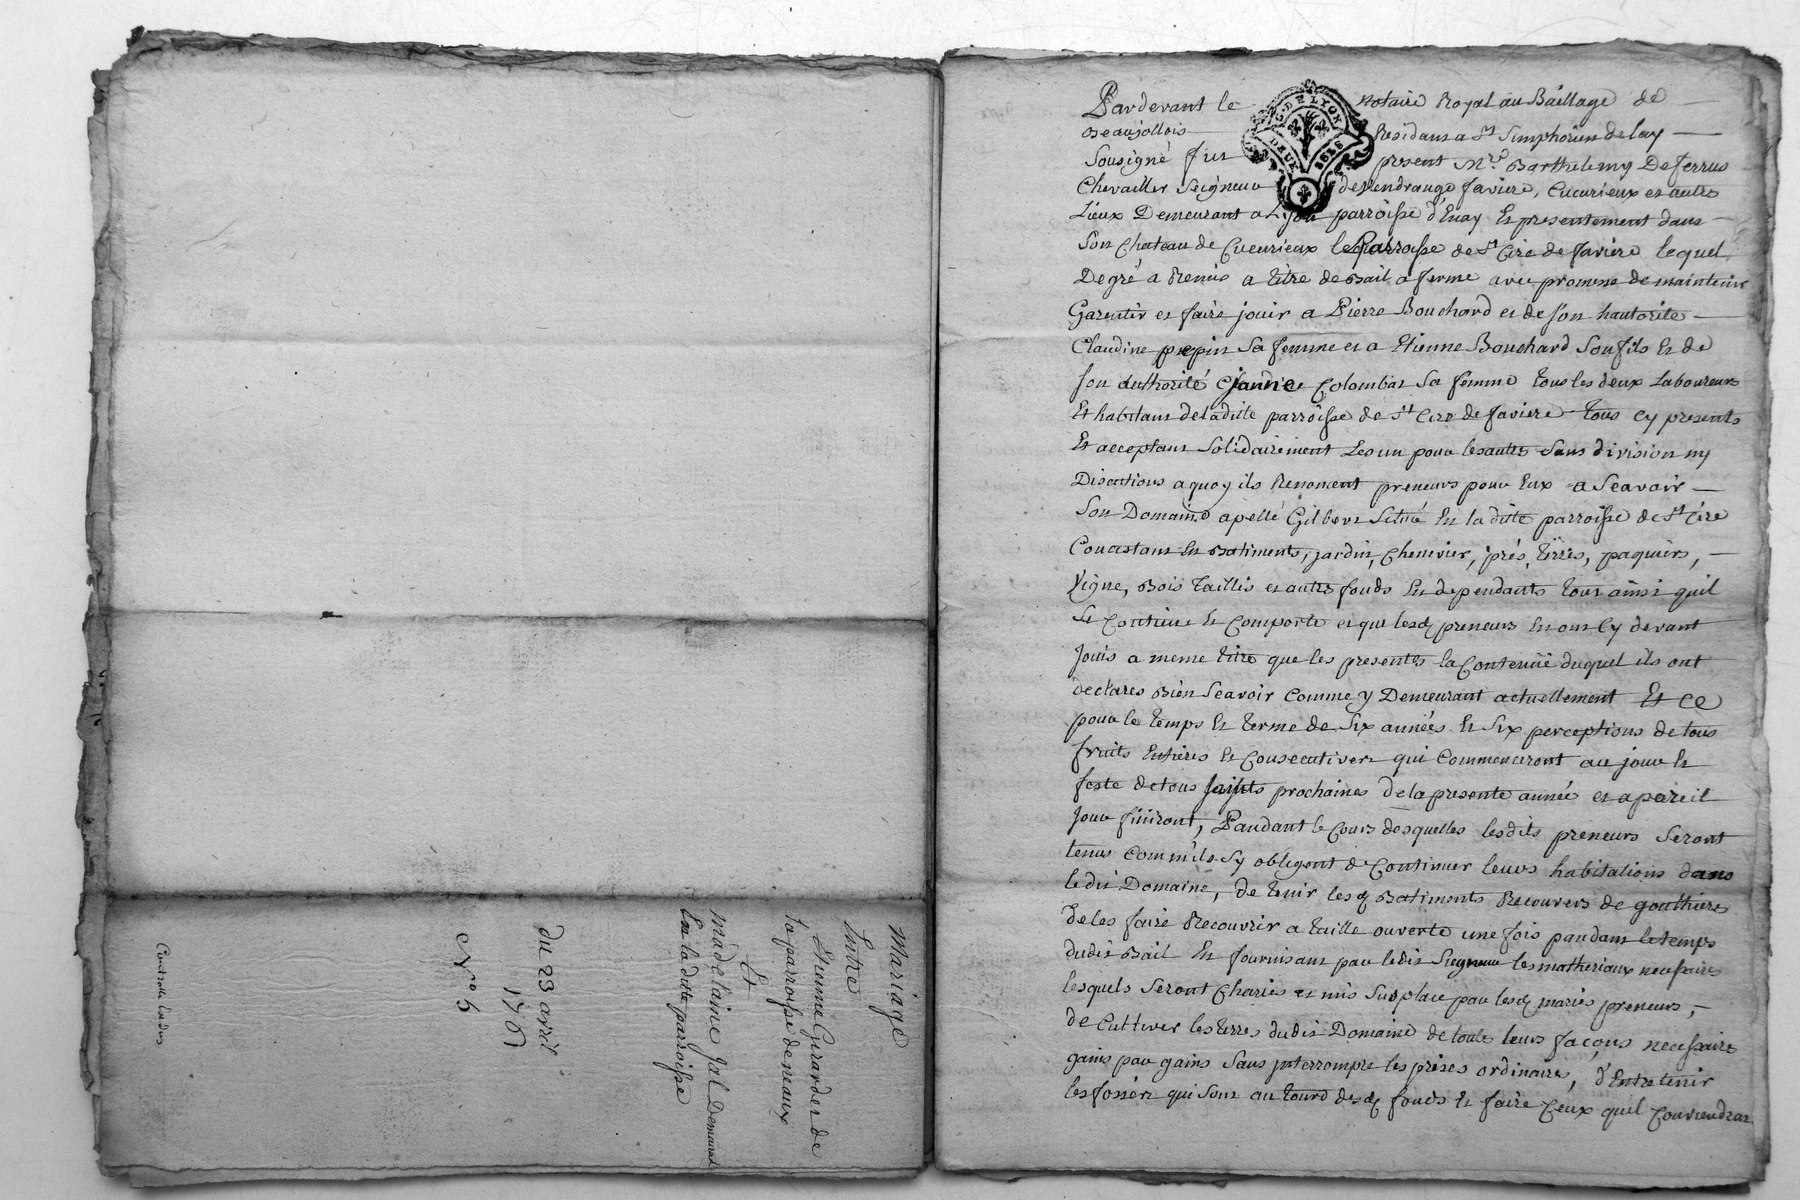 Mariage
Entre
Etienne Girarder de
la parroisse de neaux
Et
madelaine Jal Demeurant
En la ditte parroisse
du 23 avril
1761
N° 5
Controlle
G. DE LYON
DEUX
Pardevant le notaire Royal au Baillage de
Beaujollois Residant a St Simphorien de lay
Sousigné fut present Mre Barthelemy De ferrus
Chevallier Seigneur de Vendrange faviere, Cucurieux et autre
Lieux Demeurant a Lyon parroisse d'Enay Et presentement dans
Son Chateau de Cucurieux Parroisse de St Cire de faviere lequel
De gré a Remis a titre de Bail a ferme avec promesse de maintenir
Garentir et faire jouir a Pierre Bouchard et de son hautorité
Claudine pepin Sa femme et a Etienne Bouchard Son fils Et de
son authorité Colombat Sa femme tous les deux Laboureurs
Et habitans de ladite parroisse de St Cire de faviere tous cy presents
Et acceptant Solidairement Les un pour les autre Sans division ny
Discutions a quoy ils Renoncent preneurs pour Eux a Scavoir
Son Domaine apellé Gilbert Situé En la ditte parroisse de St Cire
Concistant En Batiments, jardin, Chenevier, prés, terres, paquiers,
Vigne, Bois taillis et autre fonds En dependants tout ainsi quil
Se Contient Et Comporte et que lesd preneurs En ont Cy devant
Jouis a meme titre que les presentes la Contenüe duquel ils ont
declares Bien Scavoir Comme y Demeurant actuellement Et Ce
pour le temps Et terme de Six années Et Six perceptions de tous
fruits Entieres Et Consecutives qui Commenceront au jour Et
feste de tous saints prochaines de la presente année et a pareil
Jour finiront, Pandant le Cours desquelles lesdits preneurs Seront
tenus Comm'ils Sy obligent de Continuer leurs habitations dans
ledit Domaine, de tenir lesd Batiments Recouvers de gouthieres
de les faire Recouvrir a taille ouverte une fois pandant le temps
dudit Bail En fournisant par ledit Seigneur les matheriaux necessaire
lesquels Seront Chariés et mis Sus place par lesd mariés preneurs,
de Cultiver les terres dudit Domaine de toute leurs façons necessaire
gains par gains Sans jnterrompre les prises ordinaires, d'Entretenir
les fossés qui Sont au tourd desd fonds Et faire Ceux quil Conviendrat